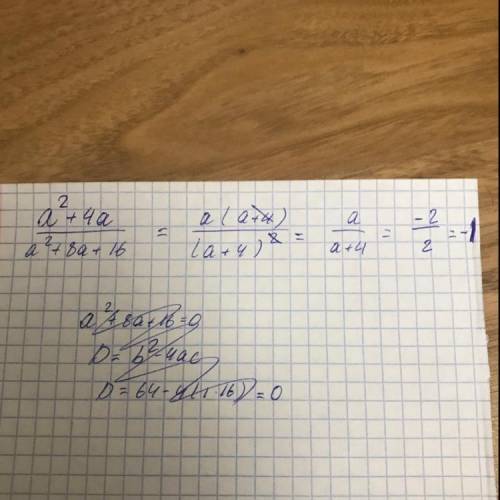 a²+4a / a²+8a+16 = a(a+4) / (a+4)² = a / a+4 = -2 / 2 = -1
a²+8a+16=0
D=b²-4ac
D=64-4(1·16)=0